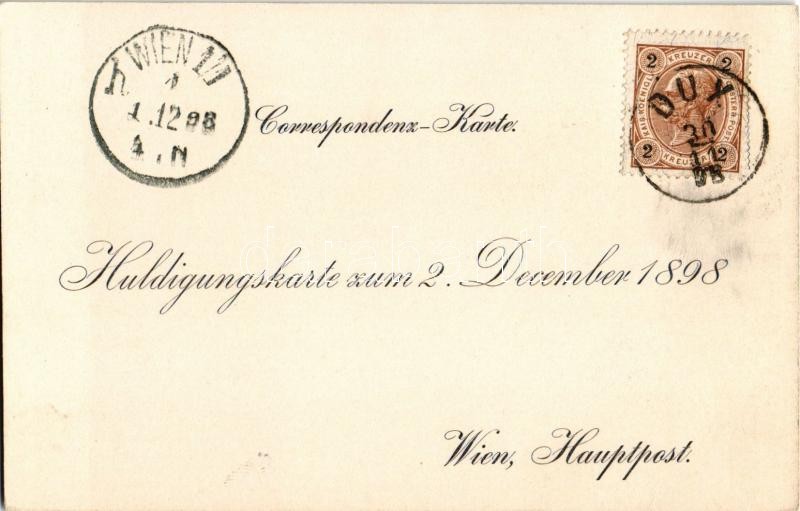 WIEN 1/1
1
1.12 98
4.N
2 KREUZER 2
2 KREUZER 2
DUX
30
11
98
Correspondenz-Karte.
Huldigungskarte zum 2. December 1898
Wien, Hauptpost.